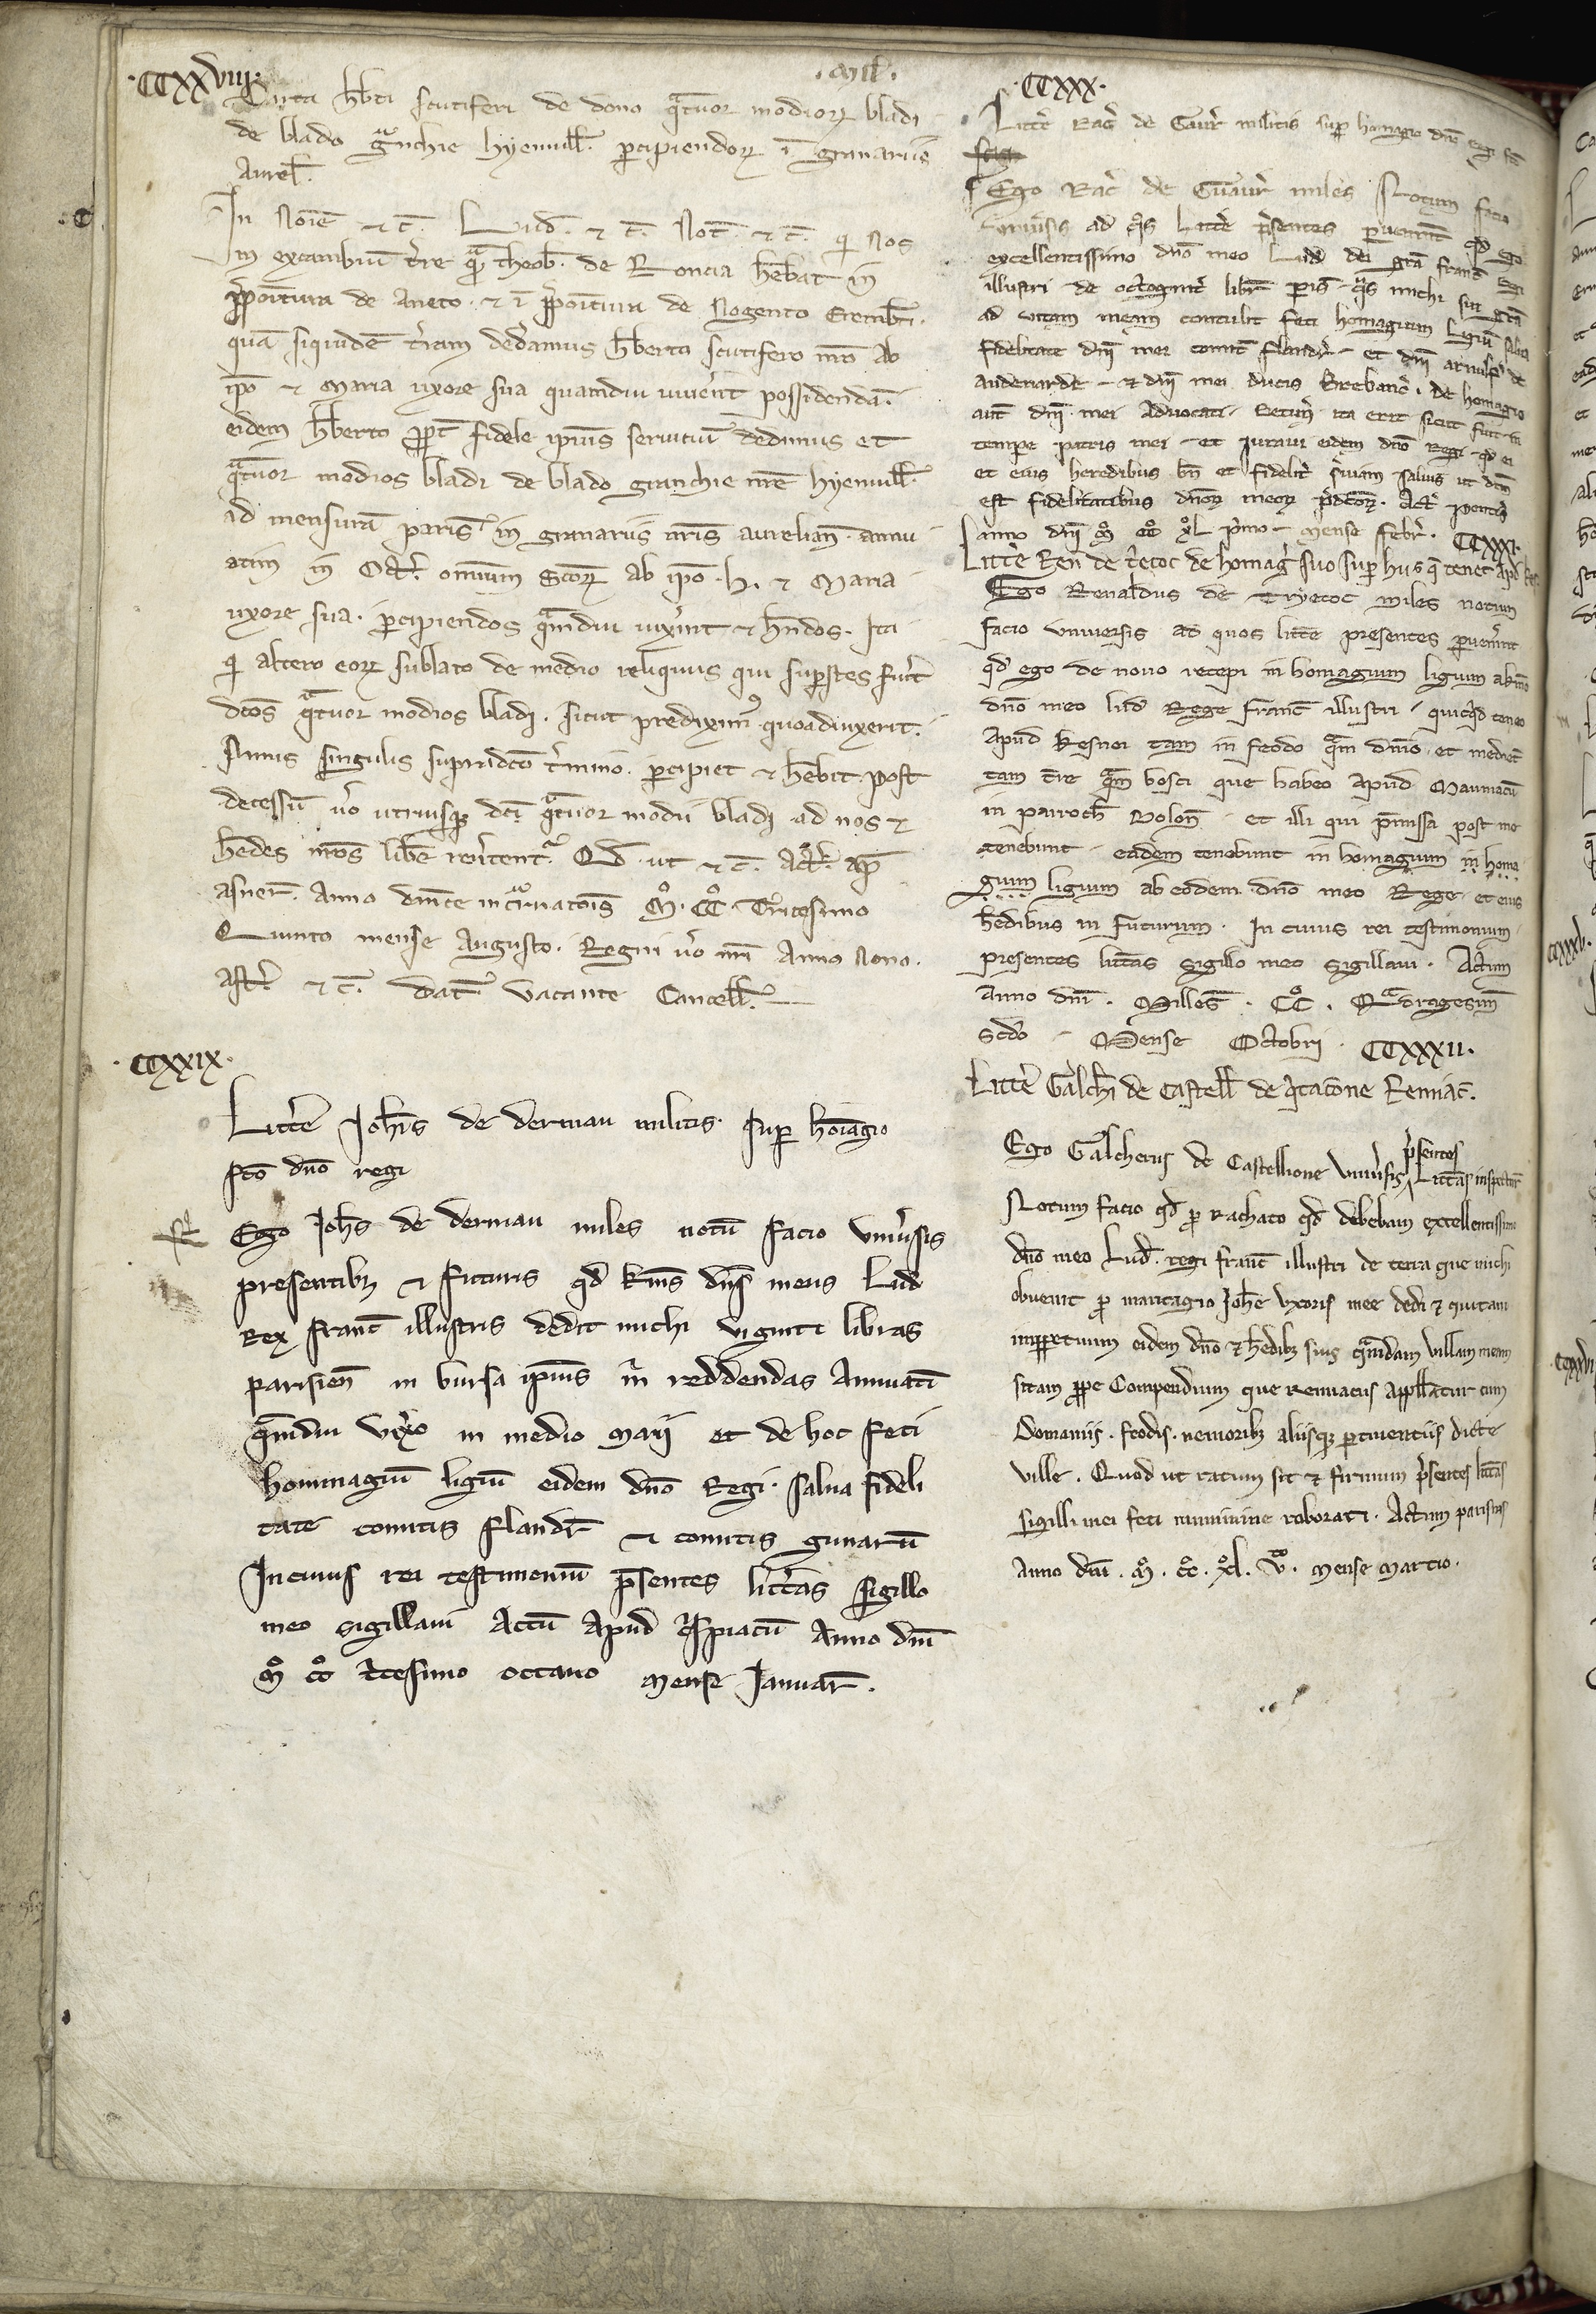 ·CCXXVIII·
Carta hb̄ti scutiferi de dono qͣtuor modioꝝ bladi
de blado gͣnchie hyenuill̄. ꝑcipiendoꝝ ī granariis
Aurel̄.
In Noīe ⁊ c̄. Lud̄. ⁊ c̄. Not̄. ⁊ c̄. ꝙ Nos
in excambiū t̓re qͣm theob̄. de Roncia hēbat in
p̄poitura de Aneto. ⁊ ī p̄poitura de Nogento Erembt̄i.
quā siquidē t̓ram ded̓amus hb̄erto scutifero nr̄o Ab
ip̄o ⁊ Maria uxore sua quamdiu uiuent possidendā.
eidem hb̄erto ꝓpt̄ fidele ipiūs seruitiū dedimus et
qͣtuor modios bladi de blado granchie nr̄e hyenuill̄.
ad mensurā paris̄ in granariis nr̄is aurelian̄. annu
atim in Oct̄. omnium Sc̄oꝝ ab ip̄o .h. ⁊ Maria
uxore sua. ꝑcipiendos qͣmdiu uix̓int ⁊ hn̄dos. Ita
ꝙ altero eoꝝ sublato de medio reliquus qui suꝑstes fu̓it
dc̄os qͣtuor modios bladi. sicut prediximꝰ quoad uixerit.
Annis singulis supradc̄o t̓mino. ꝑcipiet ⁊ hēbit. Post
decessū u̓o utriusqꝫ dc̄i qͣtuor modii bladi ad nos ⁊
hēdes nr̄os libē reu̓tentͬ. Qd̄ ut ⁊ c̄. Act̄. ap̄
asner̄. Anno dn̄ice incͣrnatōis Mº. CCº. Tͥcesimo
Quinto mense Augusto. Regni u̓o nr̄i Anno Nono.
ast̄. ⁊ c̄. Dat̄. Vacante Cancell̄.
·CCXXIX·
Litt̓e Joh̄is de derman militis. suꝑ homagio
fc̄o dn̄o regi
Ego Joh̄s de derman miles notū facio Vniu̓sis
presentibꝫ ⁊ futuris qd̄ km̄s dn̄s meus Lud̄
Rex franc̄ illustris dedit michi viginti libras
parisien̄ in bursa ipiūs m̓ reddendas Annuatī
qͣmdiu vix̓o in medio Maij et de hoc feci
hommagiū ligiū eidem dn̄o Regi. salua fideli
tate comitis flandr̄ ⁊ comitis gunarū
In cuius rei testimoniū p̄sentes litt̓as sigillo
meo sigillaui Actū Apud Cispiacū Anno dn̄i
Mº CCº t̓cesimo octauo Mense Januar̄.
·CCXXX·
Litt̓e Rac̄ de Gaur̄ militis suꝑ homagio dn̄o regi fc̄o
Ego Rac̄ de Guaur̄ miles Notum facio
vniu̓sis ad qͦs litt̓e p̓sentes ꝑuenerint qd̄ ego
excellentissimo dn̄o meo Lud̄ dei grā franc̄ Regi
illustri de octoginͭ libr̄ paris̄ qͣs michi sui grā
ad uitam meam contulit feci homagium ligiū salua
fidelitate dn̄i mei comit̄ flandr̄ et dn̄i arnulf̄ de
audenarde ⁊ dn̄i mei ducis Brebanc̄. de homagio
aut̄ dn̄i mei Aduocati Betun̄ ita erit sicut fuit in
tempe patris mei et Juraui eidem dn̄o Regi qd̄ ei
et eius heredibus bn̄ et fidelit̓ s̓uiam saluis ut dc̄m
est fidelitatibus dn̄oꝝ meoꝝ p̓dc̄oꝝ. Act̄ pontis̄
anno dn̄i Mº CCº XºL p̓mo Mense febr̄. CCXXXI·
Litt̓e Ren̄ de t̓etoc de homag̓ suo suꝑ hiis q̄ tenet apd̄ kes̄
Ego Renaldus de Tryecoc miles notum
facio vniuersis ad quos litt̓e presentes ꝑuen̓int
qd̄ ego de nouo recepi in homagium ligium a kmō
dn̄o meo lud̄ Rege franc̄ illustri quicqͥd teneo
apud kesnei tam in feodo qͣm dn̄io et mediet̄
tam t̓re qͣm bosci que habeo apud Maumacū
in parroch̄ Bolon̄ et illi qui p̄missa post me
tenebunt eadem tenebunt in homagium in homa
gium ligium ab eodem dn̄o meo Rege et eius
hēdibus in futurum. In cuius rei testimonium
presentes litt̓as sigillo meo sigillaui. Actum
anno dn̄i. Milles̄. CCº. Qͣdragesim̄
sc̄do Mense Octobri. CCXXXII·
Litt̓e Galch̄i de Castell̄ de qͥtatōne Remiac̄.
Ego Galcherus de Castellione vniu̓sis p̓sentes litt̓as inspecturis
Notum facio qd̄ ꝓ rachato qd̄ debebam excellentissimo
dn̄o meo Lud̄. regi franc̄ illustri de terra que michi
obuenit ꝓ maritagio Joh̄e vxoris mee dedi ⁊ quitaui
imꝑpetuum eidem dn̄o ⁊ h̄edibꝫ suis qͣmdam villam meam
sitam ꝓpe Compendium que Remiacus appellatur cum
Domaniis. feodis. nemoribꝫ aliisqꝫ ꝑtinentiis dicte
ville. Quod ut ratum sit ⁊ firmum p̓sentes litt̓as
sigilli mei feci munimine roborari. Actum parisius
Anno dn̄i. Mº. CCº. XºL. Vto. Mense Martio.